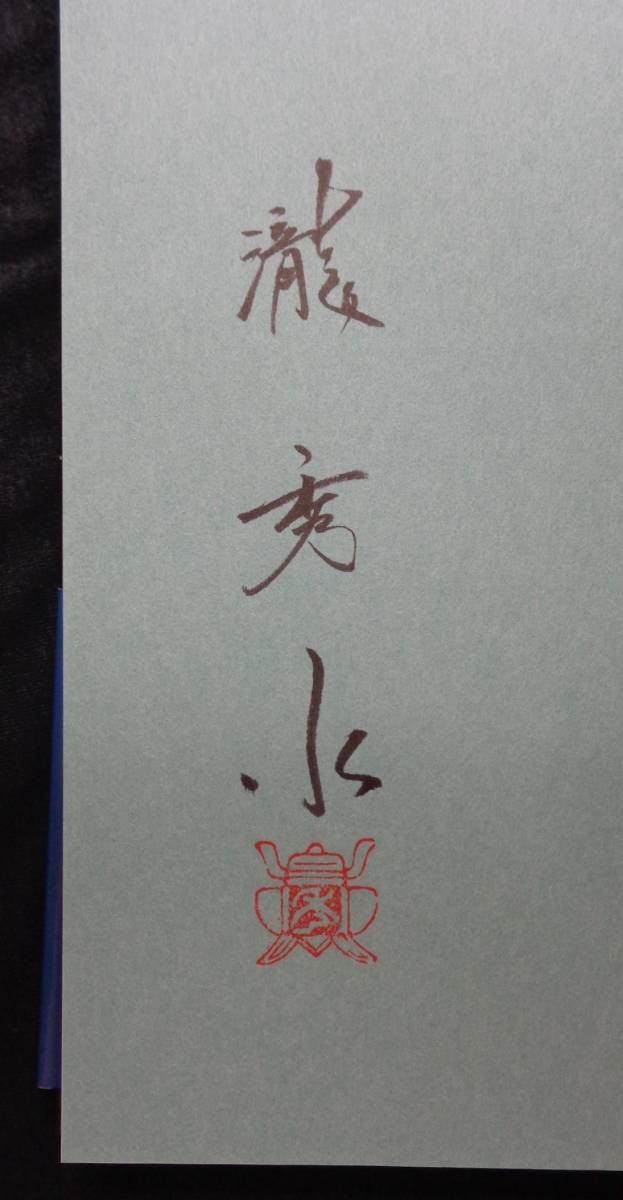 瀧秀水